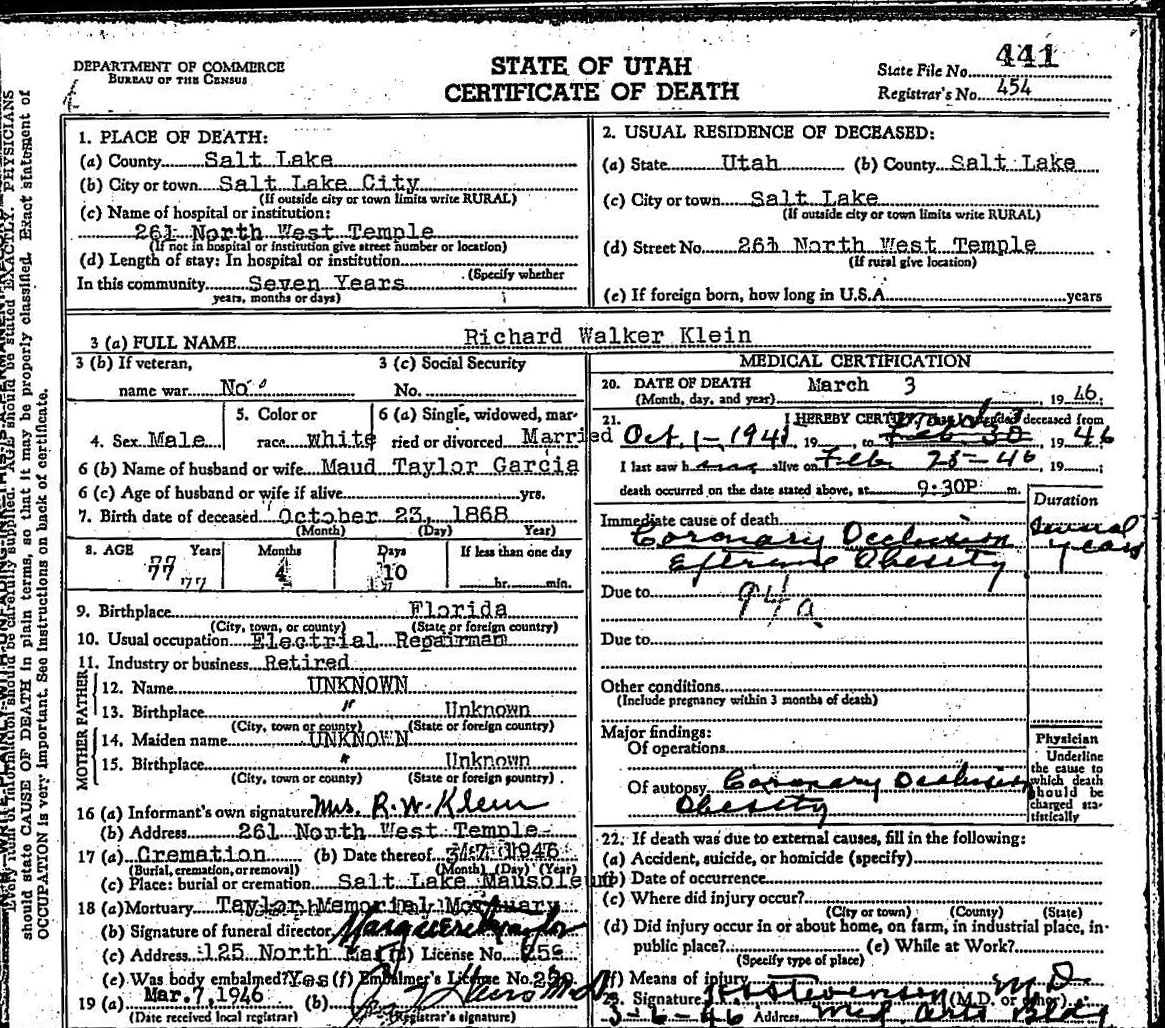 DEPARTMENT OF COMMERCE
BUREAU OF THE CENSUS
STATE OF UTAH
CERTIFICATE OF DEATH
State File No. 441
Registrar's No. 454
should state CAUSE OF DEATH in plain terms, so that it may be properly classified. Exact statement of
OCCUPATION is very important. See instructions on back of certificate.
1. PLACE OF DEATH:
(a) County Salt Lake
(b) City or town Salt Lake City
(If outside city or town limits write RURAL)
(c) Name of hospital or institution:
261 North West Temple
(If not in hospital or institution give street number or location)
(d) Length of stay: In hospital or institution
(Specify whether
In this community Seven Years
years, months or days)
2. USUAL RESIDENCE OF DECEASED:
(a) State Utah (b) County Salt Lake
(c) City or town Salt Lake
(If outside city or town limits write RURAL)
(d) Street No. 261 North West Temple
(If rural give location)
(e) If foreign born, how long in U.S.A. years
3 (a) FULL NAME Richard Walker Klein
3 (b) If veteran, 3 (c) Social Security
name war No No.
4. Sex Male 5. Color or race white 6 (a) Single, widowed, married or divorced Married
6 (b) Name of husband or wife Maud Taylor Garcia
6 (c) Age of husband or wife if alive yrs.
7. Birth date of deceased October 23, 1868
(Month) (Day) Year)
8. AGE Years Months Days If less than one day
77 4 10 hr. min.
77
9. Birthplace Florida
(City, town, or county) (State or foreign country)
10. Usual occupation Electrial Repairman
11. Industry or business Retired
FATHER
12. Name UNKNOWN
13. Birthplace " Unknown
(City, town or county) (State or foreign country)
MOTHER
14. Maiden name UNKNOWN
15. Birthplace " Unknown
(City, town or county) (State or foreign country)
16 (a) Informant's own signature Mrs. R. W. Klein
(b) Address 261 North West Temple
17 (a) Cremation (b) Date thereof 3-7-1946
(Burial, cremation, or removal) (Month) (Day) (Year)
(c) Place: burial or cremation Salt Lake Mausoleum
18 (a) Mortuary Taylor Memorial Mortuary
(b) Signature of funeral director
(c) Address 125 North (d) License No.
(e) Was body embalmed? Yes (f) Embalmer's License No.
19 (a) Mar. 7, 1946 (b)
(Date received local registrar) (Registrar's signature)
MEDICAL CERTIFICATION
20. DATE OF DEATH March 3
(Month, day, and year) , 19 46.
21. I HEREBY CERTIFY That I attended deceased from
Oct. 1-1941, 19 , to , 19 46
I last saw h alive on Feb 28-46, 19 ;
death occurred on the date stated above, at 9:30P m.
Duration
Immediate cause of death
Coronary Occlusion several years
Extreme Obesity
Due to 94a
Due to
Other conditions
(Include pregnancy within 3 months of death)
Major findings:
Of operations
Of autopsy Coronary Occlusion
Obesity
Physician
Underline
the cause to
which death
should be
charged sta-
tistically
22. If death was due to external causes, fill in the following:
(a) Accident, suicide, or homicide (specify)
(b) Date of occurrence
(c) Where did injury occur?
(City or town) (County) (State)
(d) Did injury occur in or about home, on farm, in industrial place, in
public place? (e) While at Work?
(Specify type of place)
(f) Means of injury
23. Signature Stevenson M D (M.D. or other)
3-6-46 Address Med Arts Bldg